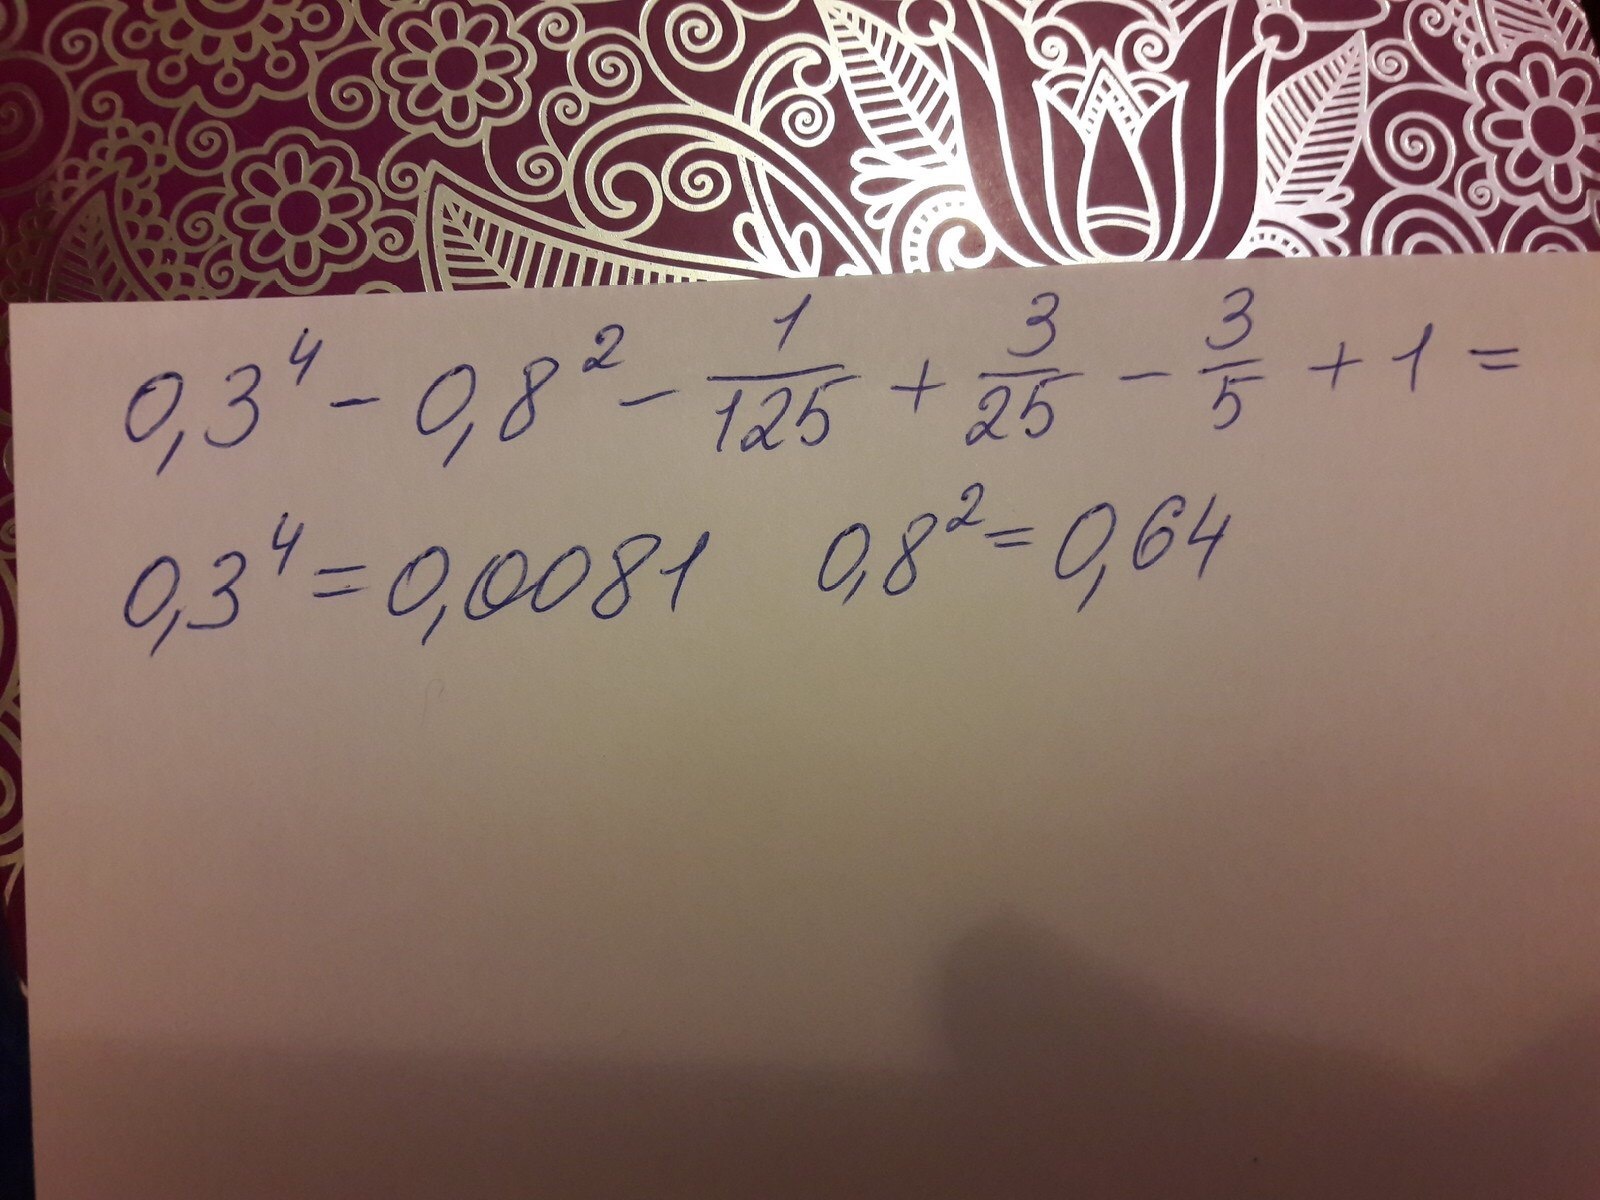 0,3⁴ - 0,8² - 1/125 + 3/25 - 3/5 + 1 =
0,3⁴ = 0,0081 0,8² = 0,64